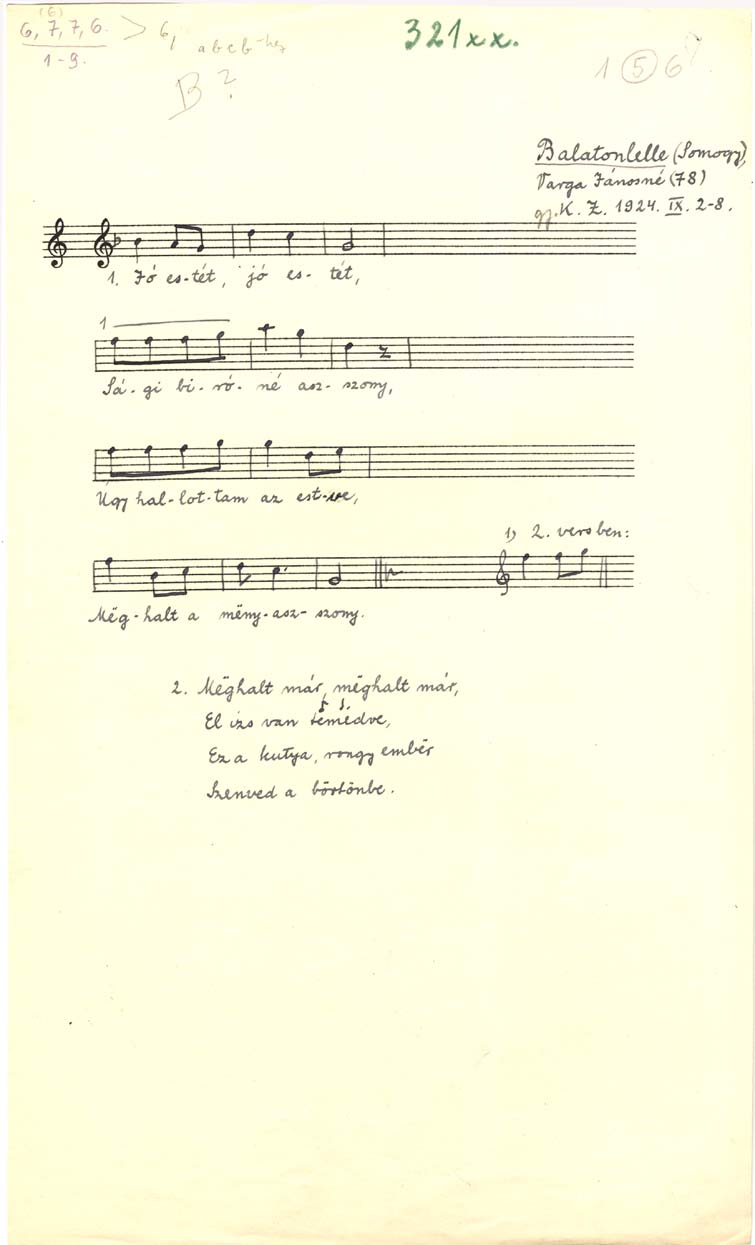 (6)
6, 7, 7, 6. > 6,
1-9.
a b c b -hez
B ?
321xx.
1 5 6
Balatonlelle (Somogy),
Varga Jánosné (78)
gy. K. Z. 1924. IX. 2-8.
1. Jó es-tét, jó es-tét,
1
Sá-gi bi-ró-né asz-szony,
Úgy hal-lot-tam az est-ve,
1) 2. versben:
Mëg-halt a mëny-asz-szony.
2. Mëghalt már, mëghalt már,
El izs van temedve,
Ez a kutya, rongy embër
Szenved a börtönbe.